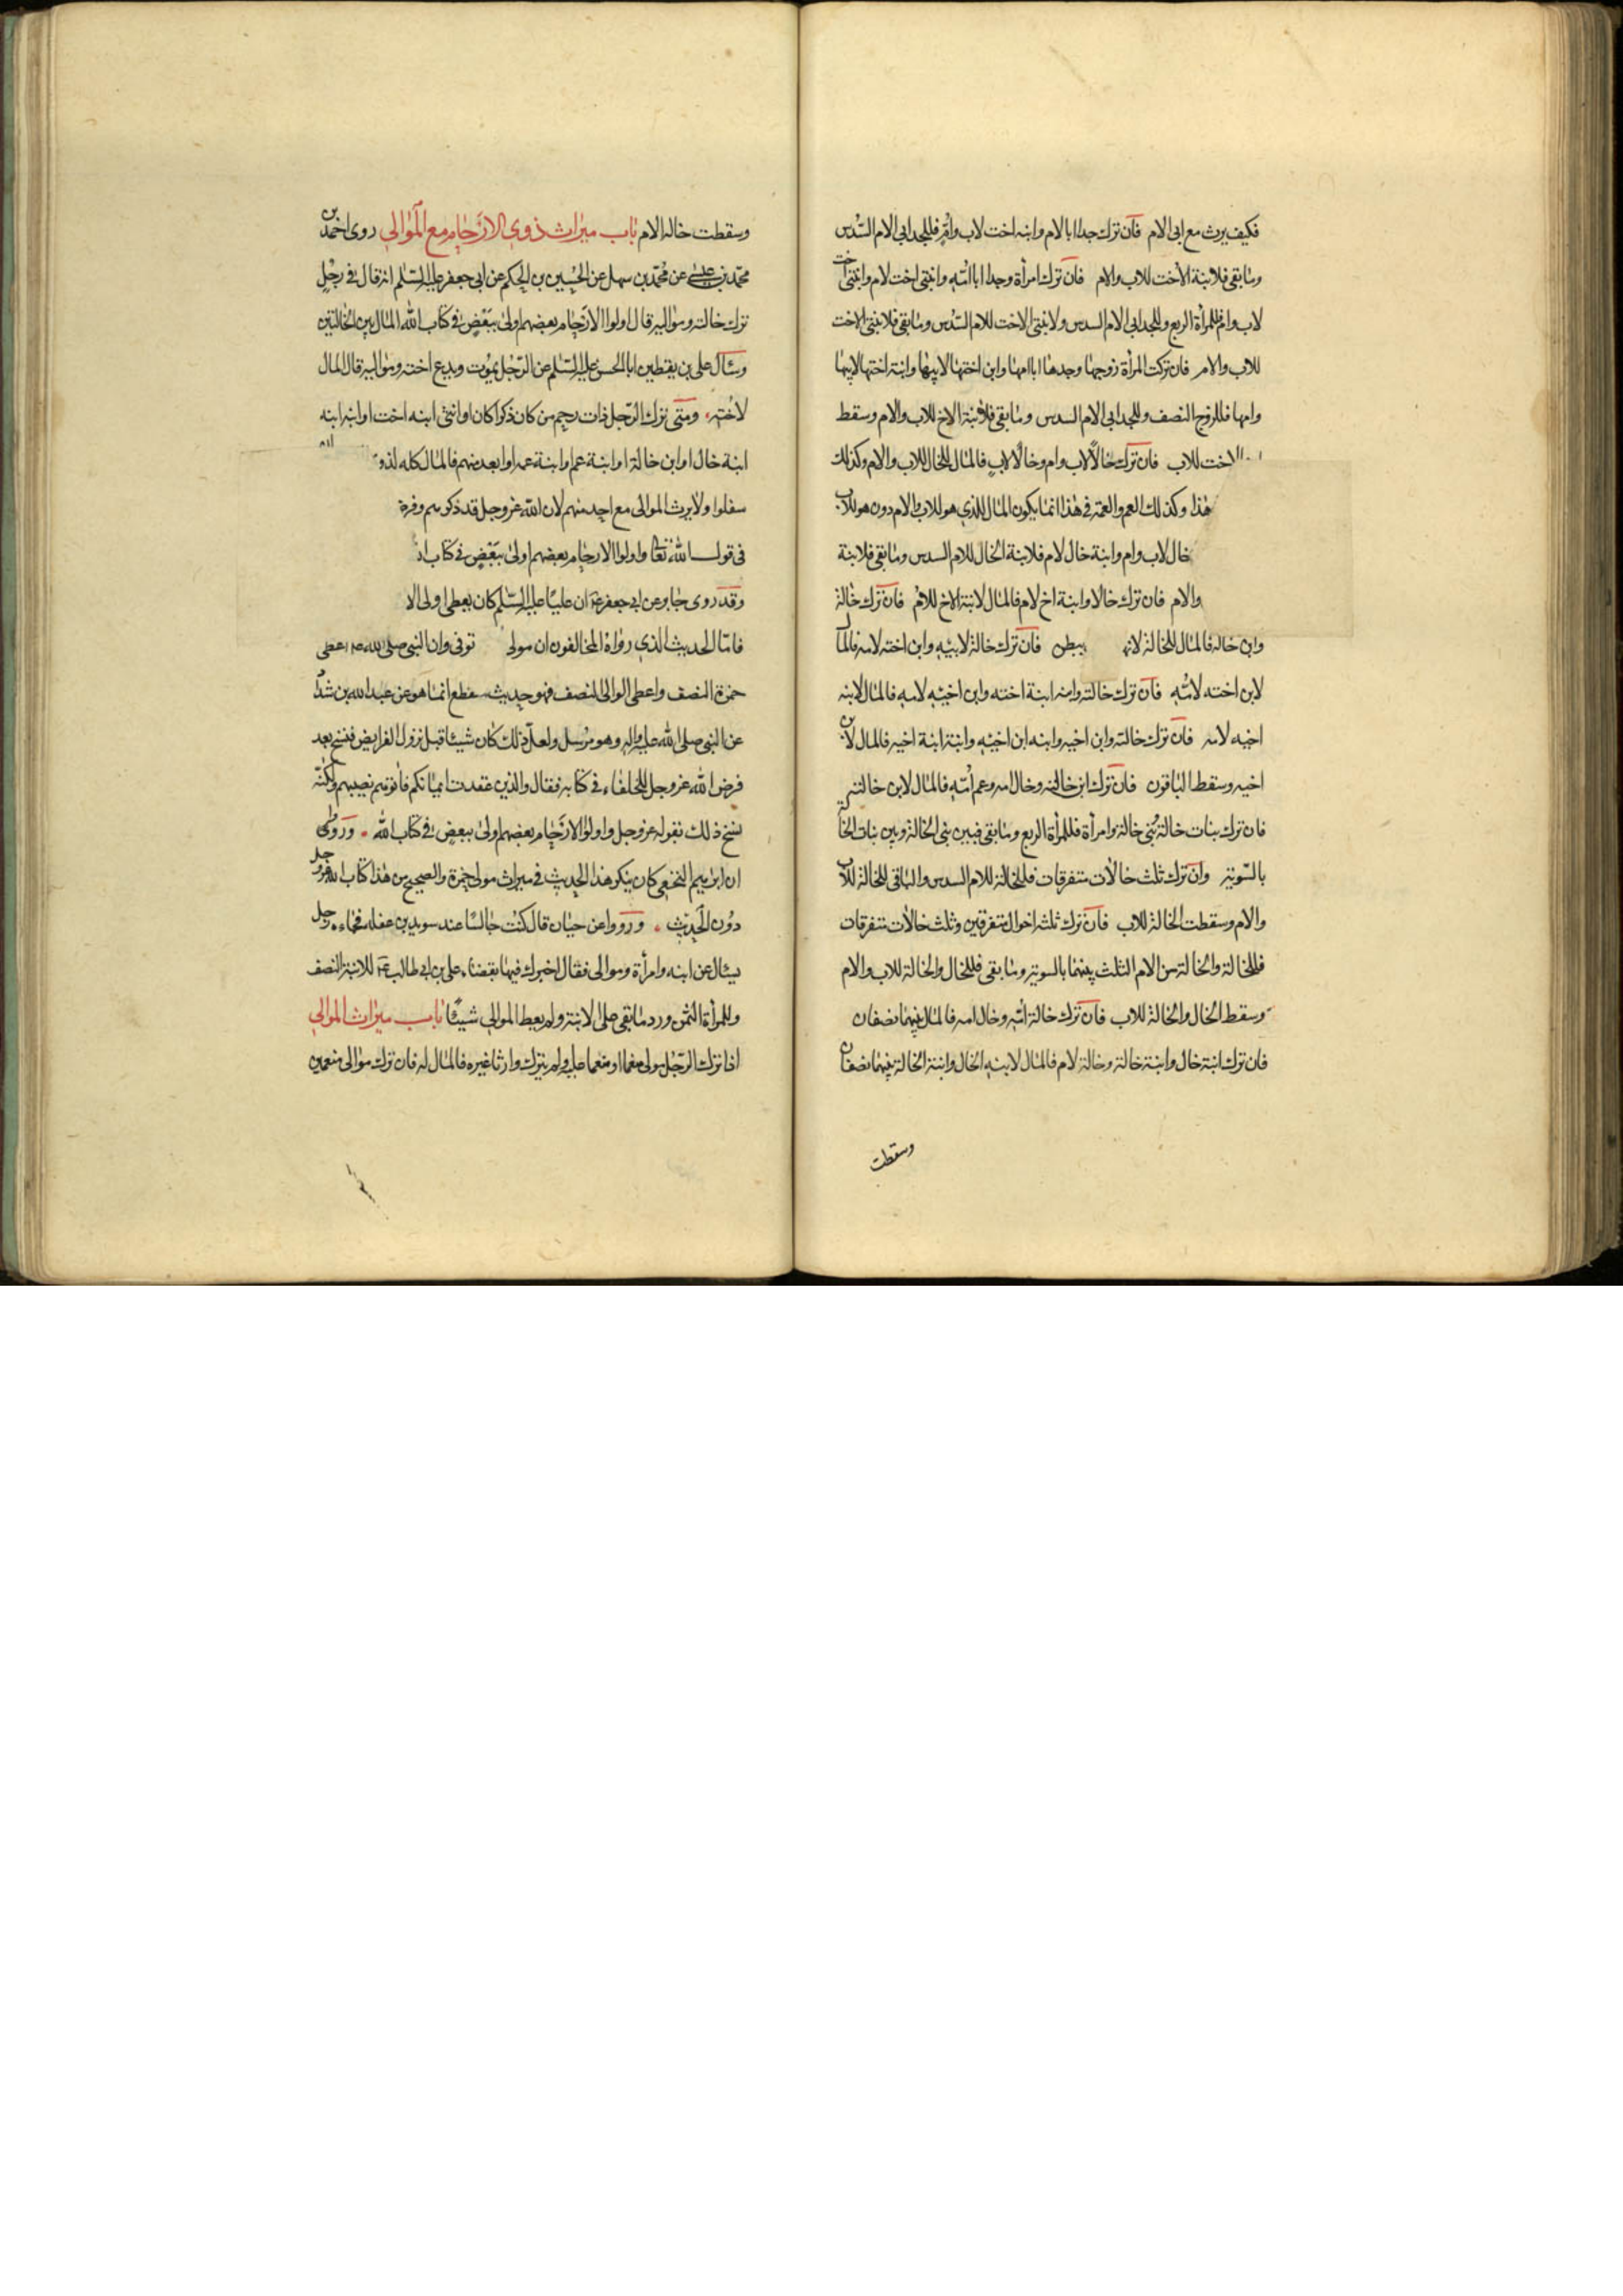 فكيف يرث مع ابى الام فان ترك جدا ابا الام وابنه اخت لاب وام فللجد ابى الام السدس
وما بقى فلابنة الأخت للاب والام فان ترك امرأة وجدا ابا امه وابنتى اخت لام وابنتى اخت
لاب وام فللمرأة الربع وللجد ابى الام السدس ولابنتى الاخت للام السدس وما بقى فلابنتى الاخت
للاب والام فان تركت المرأة زوجها وجدها ابا امها وابن اختها لابيها وابنة اختها لابيها
وامها فللزوج النصف وللجد ابى الام السدس وما بقى فلابنة الاخ للاب والام وسقط
الاخت للاب فان ترك خالا لاب وام وخالا لاب فالمال للخال للاب والام وكذلك
هذا وكذلك العم والعمة فى هذا انما يكون المال للذى هو للاب والام دون هو للاب
خال لاب وام وابنة خال لام فلابنة الخال للام السدس وما بقى فلابنة
والام فان ترك خالا وابنة اخ لام فالمال لابنة الاخ للام فان ترك خالة
وابن خاله فالمال للخالة لانها ببطن فان ترك خالة لابيه وابن اخته لامه فالمال
لابن اخته لامه فان ترك خالته وابنه ابنة اخته وابن اخيه لامه فالمال لابنه
اخيه لامه فان ترك خالته وابن اخيه وابنه ابن اخيه وابنة ابنة اخيه فالمال لابن
اخيه وسقط الباقون فان ترك ابن خالته وخال امه وعم امه فالمال لابن خالته
فان ترك بنات خالة بنى خالة وامرأة فللمرأة الربع وما بقى فبين بنى الخالة وبين بنات الخالة
بالسوية وان ترك ثلث خالات متفرقات فللخالة للام السدس والباقى للخالة للاب
والام وسقطت الخالة للاب فان ترك ثلثه اخوال متفرقين وثلث خالات متفرقات
فللخالة والخالة من الام الثلث بينهما بالسوية وما بقى فللخال والخالة للاب والام
وسقط الخال والخالة للاب فان ترك خالة امه وخال امه فالمال بينهما نصفان
فان ترك ابنة خال وابنة خالة وخالة لام فالمال لابنه الخال وابنة الخالة بينهما نصفان
وسقطت
وسقطت خاله الام باب ميراث ذوى الارحام مع الموالى روى احمد بن
محمد بن عيسى عن محمد بن سهل عن الحسين بن الحكم عن ابى جعفر عليه السلم انه قال فى رجل
ترك خالته ومواليه قال اولوا الارحام بعضهم اولى ببعض فى كتاب الله المال بين الخالتين
وسئال على بن يقطين ابا الحسن عليه السلم عن الرجل يموت ويدع اخته ومواليه قال المال
لاخته ومتى ترك الرجل ذات رحم من كان ذكرا كان او انثى ابنه اخت او ابنه ابنه
ابنة خال او ابن خالة او ابنة عم او ابنة عمه او ابعد منهم فالمال كله لذو
سفلوا ولا يرث الموالى مع احد منهم لان الله عز وجل قد ذكرهم وفرة
فى قول الله تعالى واولوا الارحام بعضهم اولى ببعض فى كتاب ا
وقد روى جابر عن ابى جعفر ع ان عليا عليه السلم كان يعطى اولى الا
فاما الحديث الذى رواه المخالفون ان مولى توفى وان النبى صلى الله اعطى
حمزة النصف واعطى الوالى النصف فهو حديث منقطع انما هو عن عبد الله بن شداد
عن النبى صلى الله عليه واله وهو مرسل ولعل ذلك كان شيئا قبل نزول الفرايض فنسخ بعد
فرض الله عز وجل للحلفاء فى كتابه فقال والذين عقدت ايمانكم فأتوهم نصيبهم ولكنه
نسخ ذلك بقوله عز وجل واولوا الارحام بعضهم اولى ببعض فى كتاب الله وروى
ان ابرهيم النخعى كان ينكر هذا الحديث فى ميراث مولى حمزة والصحيح من هذا كتاب الله عز وجل
دون الحديث ورووا عن حيان قال كنت جالسا عند سويد بن غفله فجاءه رجل
يسئال عن ابنه وامرأة وموالى فقال اخبرك فيها بقضاء على بن ابى طالب ع للابنة النصف
وللمرأة الثمن ورد ما بقى على الابنة ولم يعط الموالى شيئا باب ميراث الموالى
اذا ترك الرجل مولى منعما او منعما عليه ولم يترك وارثا غيره فالمال له فان ترك موالى منعمين